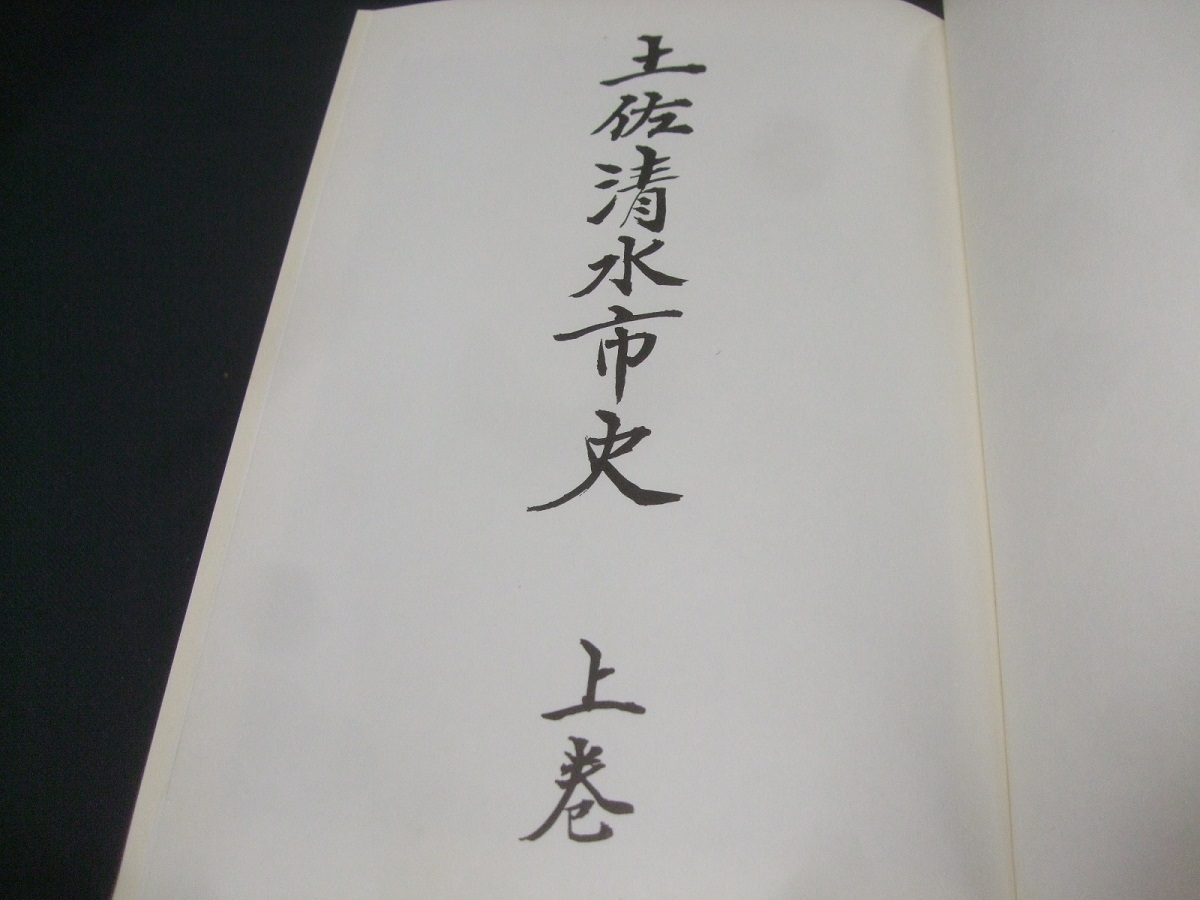 土佐清水市史 上巻